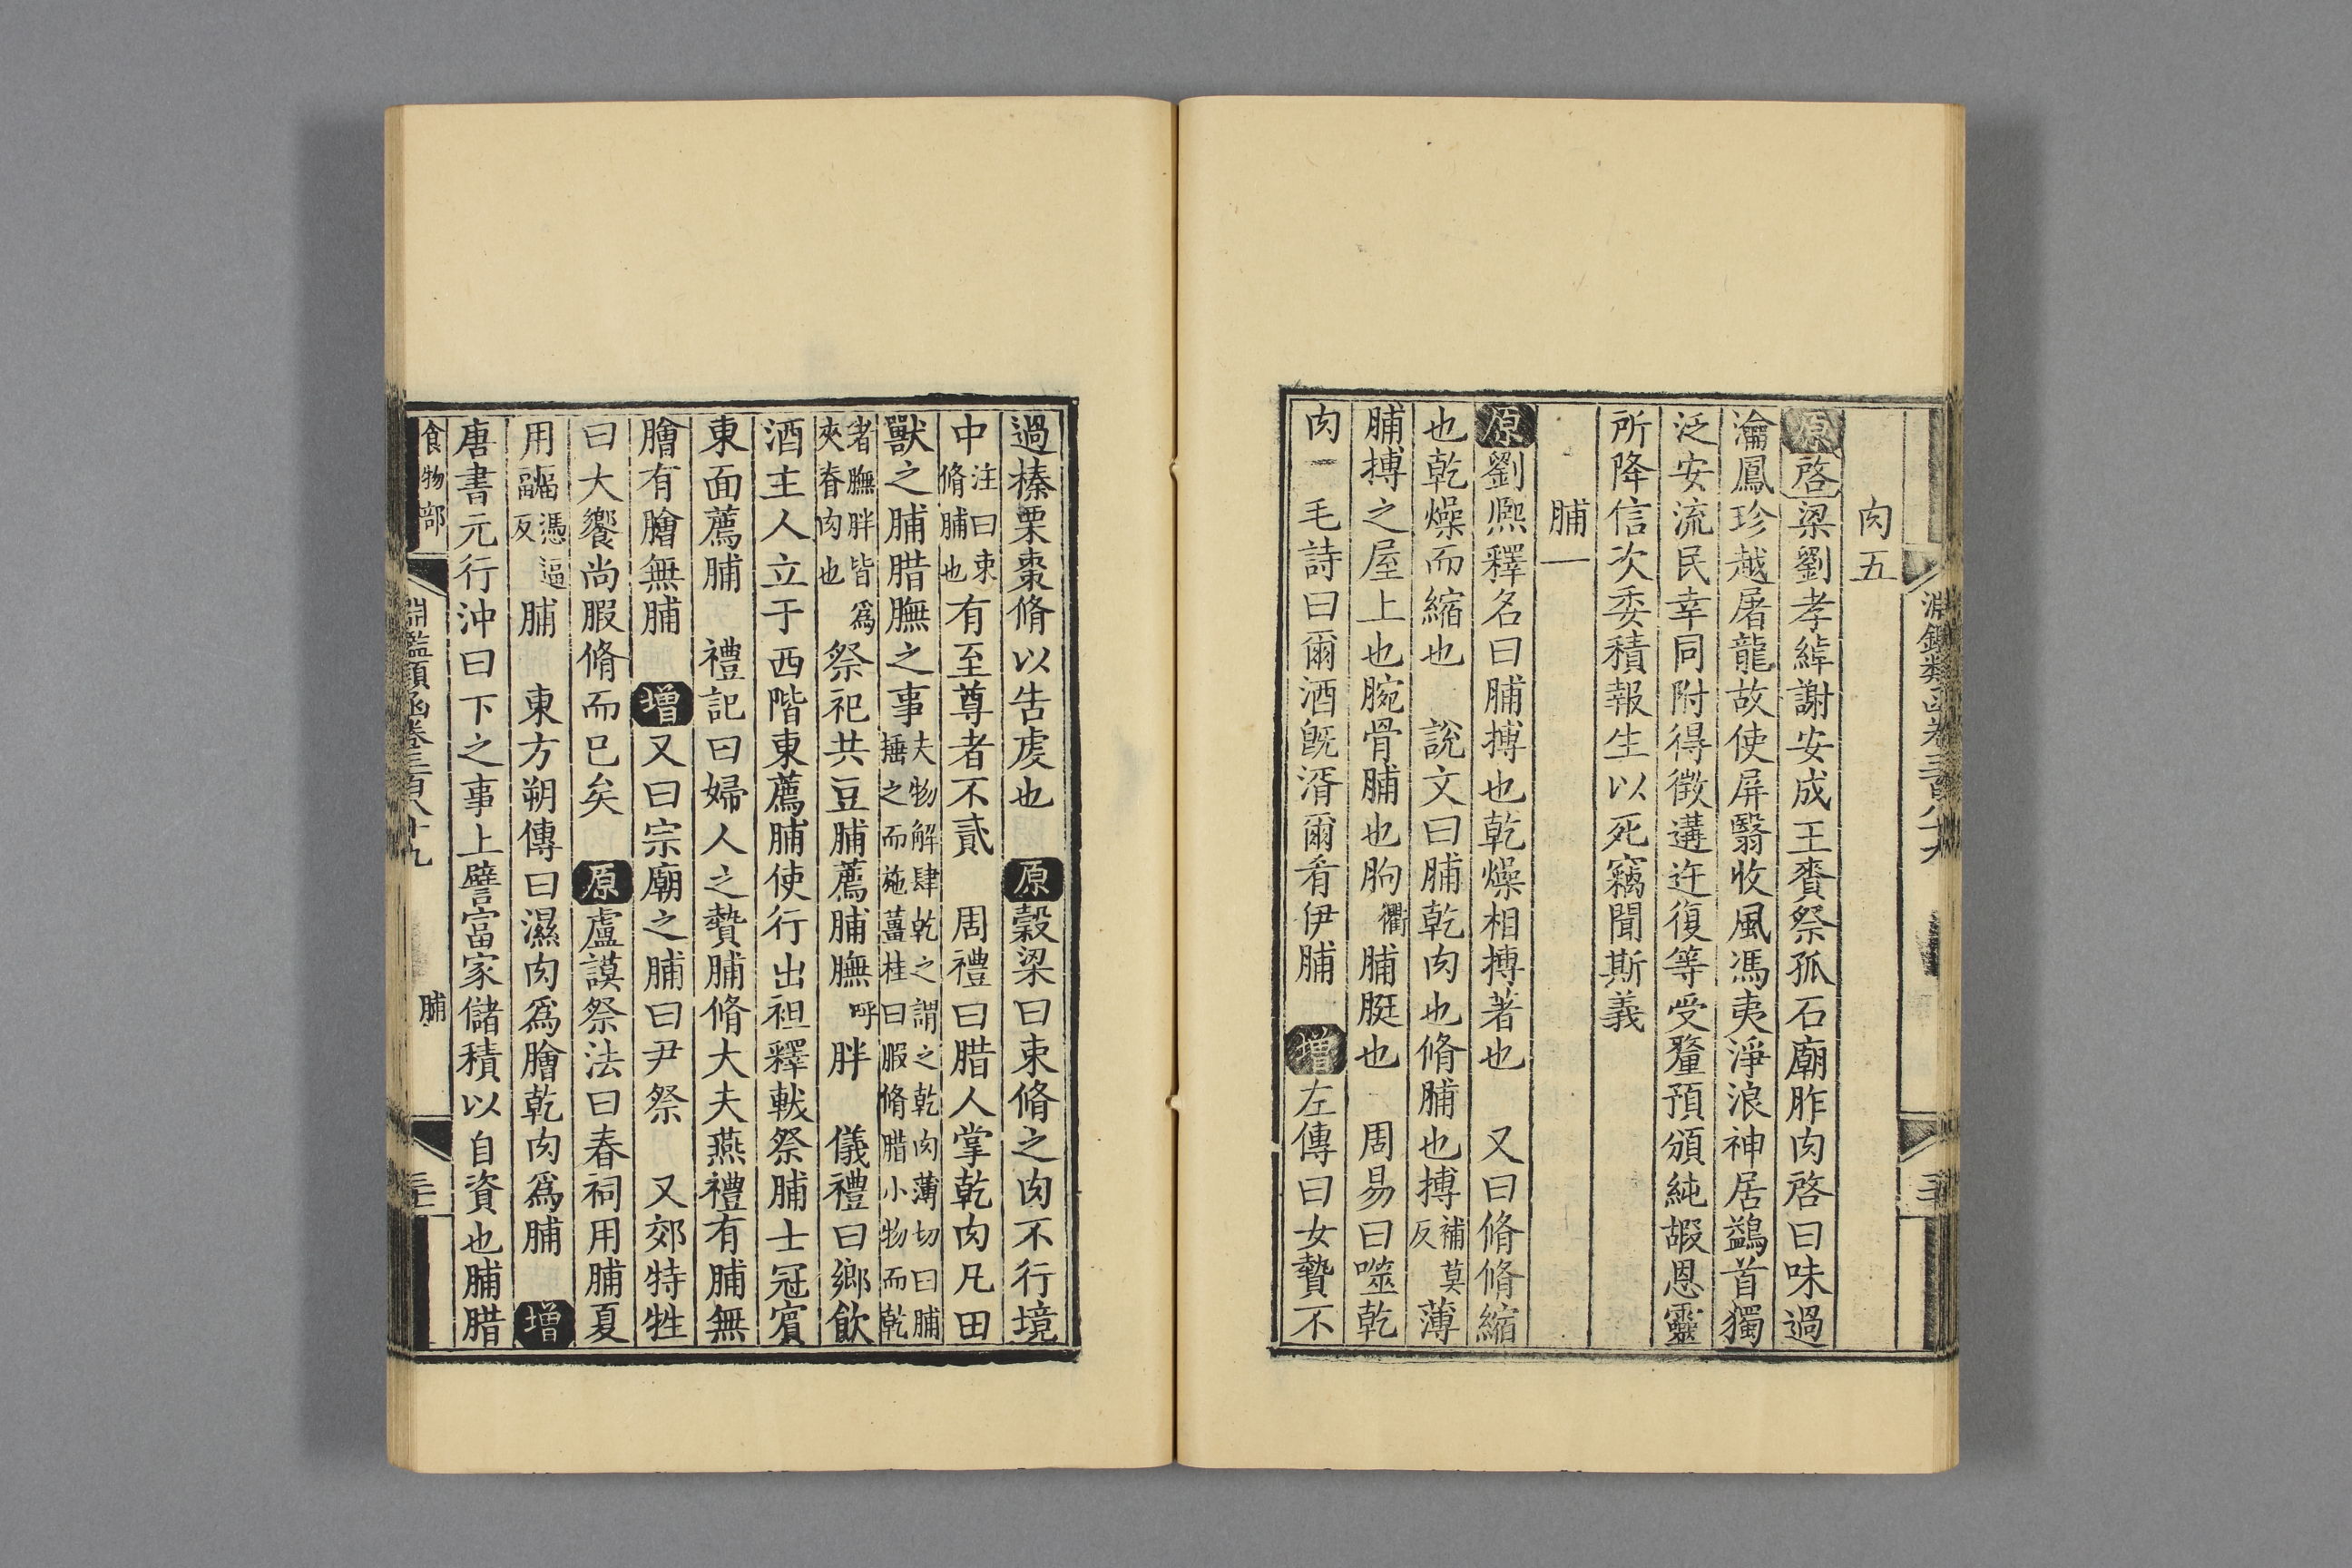 肉五
原啓梁劉孝綽謝安成王賚祭孤石廟胙肉啓曰味過
瀹鳳珍越屠龍故使屏翳收風馮夷淨浪神居鷁首獨
泛安流民幸同附得徵遘迕復等受釐預頒純嘏恩靈
所降信次委積報生以死竊聞斯義
脯一
原劉熈釋名曰脯搏也乾燥相搏著也 又曰脩脩縮
也乾燥而縮也 說文曰脯乾肉也脩脯也搏補莫反薄
脯搏之屋上也腕骨脯也朐衢脯脡也 周易曰噬乾
肉 毛詩曰爾酒旣湑爾肴伊脯 增左傳曰女贄不
過榛栗棗脩以告虔也 原穀梁曰束脩之肉不行境
中注曰束脩脯也有至尊者不貳 周禮曰腊人掌乾肉凡田
獸之脯腊膴之事夫物解肆乾之謂之乾肉薄切曰脯捶之而施薑桂曰腶脩腊小物而乾
者膴胖皆夾脊肉也爲祭祀共豆脯薦脯膴呼胖 儀禮曰鄉飲
酒主人立于西階東薦脯使行出袒釋軷祭脯士冠賓
東面薦脯 禮記曰婦人之贄脯脩大夫燕禮有脯無
膾有膾無脯 增又曰宗廟之脯曰尹祭 又郊特牲
曰大饗尚腶脩而已矣 原盧諶祭法曰春祠用脯夏
用䵗憑逼反脯 東方朔傳曰濕肉爲膾乾肉爲脯 增
唐書元行沖曰下之事上譬富家儲積以自資也脯腊
食物部 淵鑑類函卷三百八十九 脯